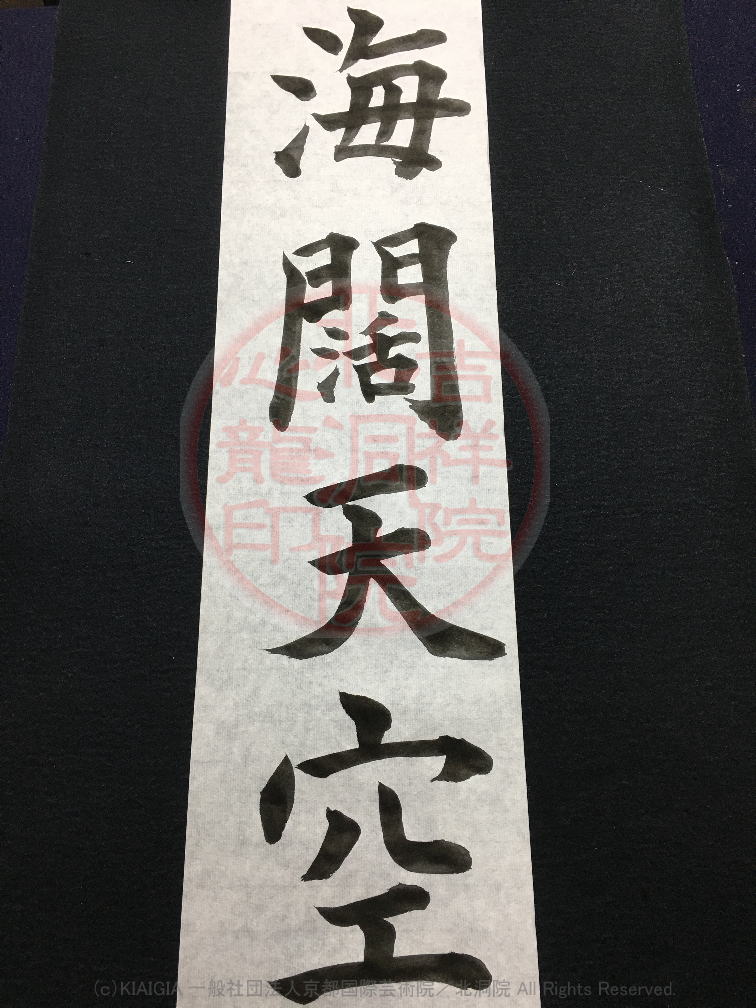 海闊天空
吉祥院
北洞院
心龍印
(c)KIAIGIA 一般社団法人京都国際芸術院／北洞院 All Rights Reserved.